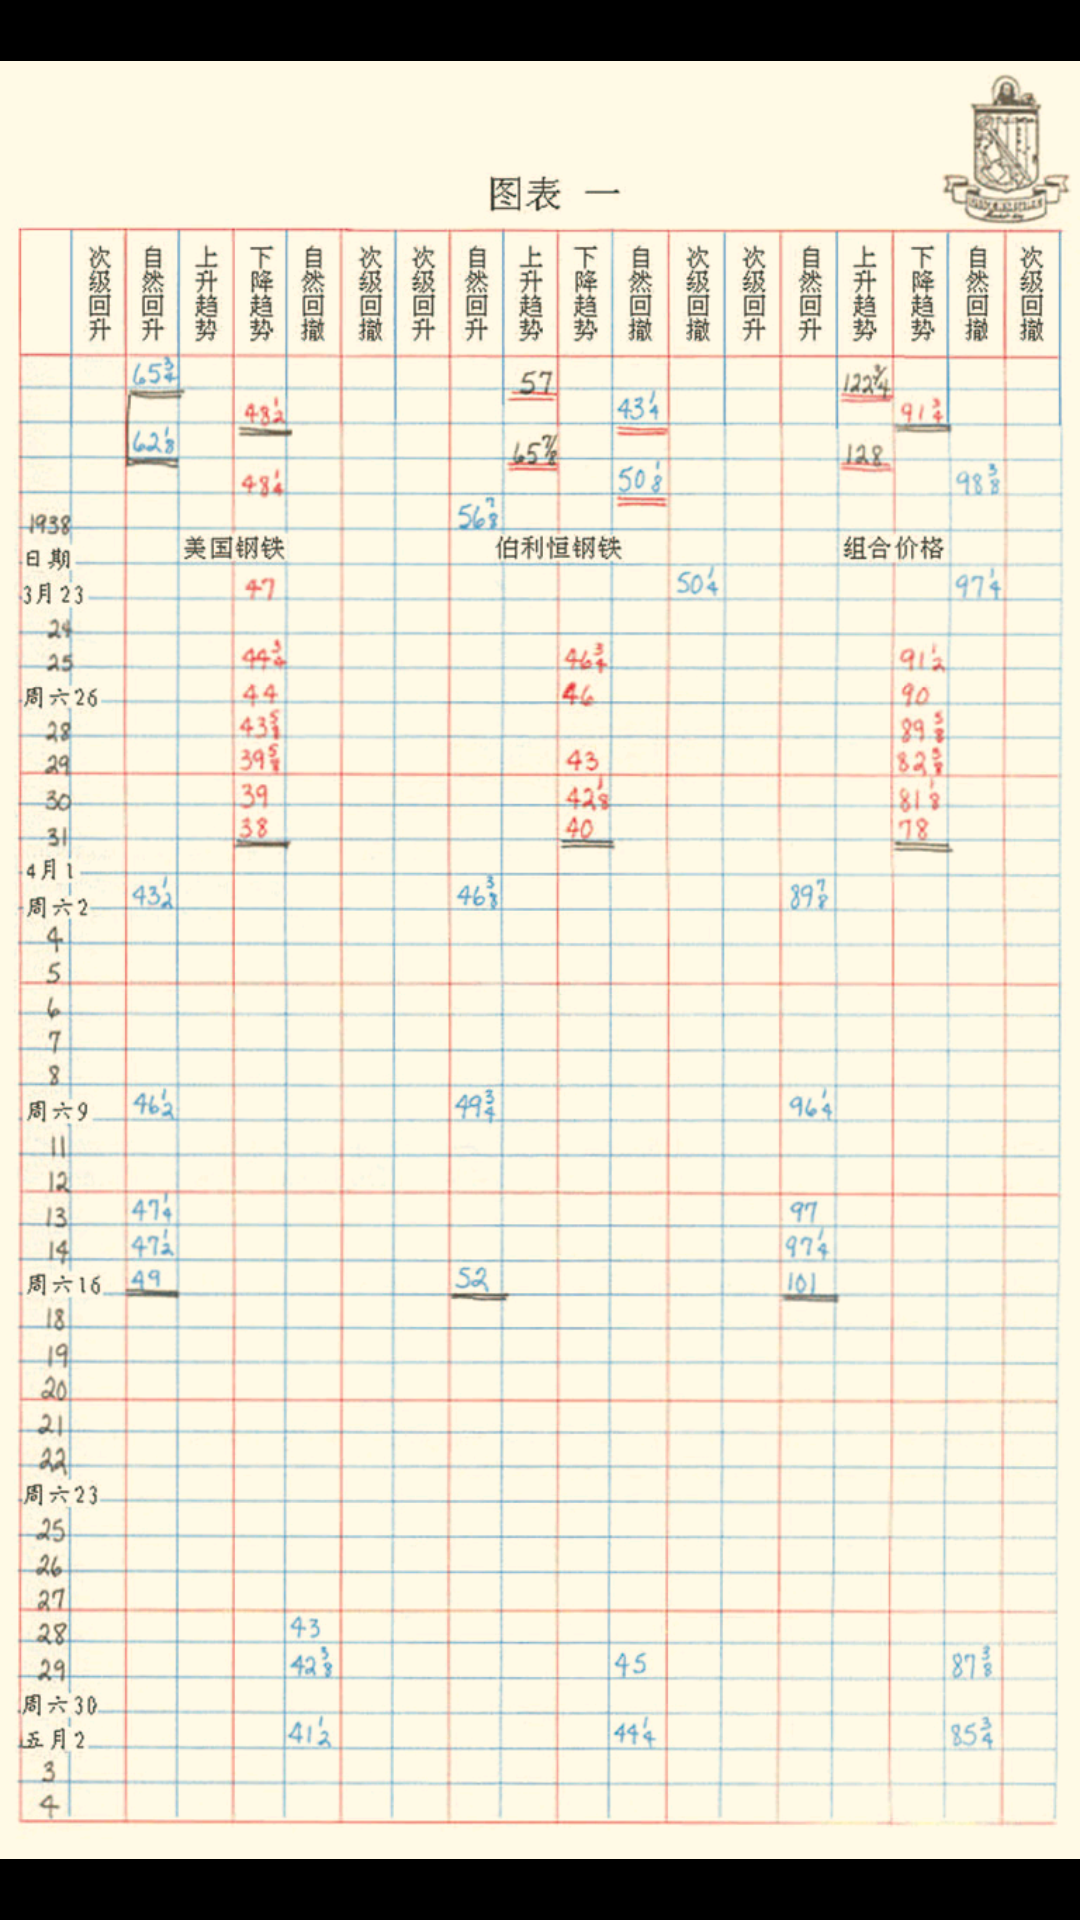 图表 一
次级回升 自然回升 上升趋势 下降趋势 自然回撤 次级回撤 次级回升 自然回升 上升趋势 下降趋势 自然回撤 次级回撤 次级回升 自然回升 上升趋势 下降趋势 自然回撤 次级回撤
65¾ 57 122¾
48½ 43¼ 91¾
62⅛ 65⅞ 128
48¼ 50⅛ 98⅜
1938 56⅞
日期 美国钢铁 伯利恒钢铁 组合价格
3月23 47 50¼ 97¼
24
25 44¾ 46¾ 91½
周六26 44 46 90
28 43⅝ 89⅝
29 39⅝ 43 82⅜
30 39 42⅛ 81⅛
31 38 40 78
4月1
周六2 43½ 46⅜ 89⅞
4
5
6
7
8
周六9 46½ 49¾ 96¼
11
12
13 47¼ 97
14 47½ 97¼
周六16 49 52 101
18
19
20
21
22
周六23
25
26
27
28 43
29 42⅜ 45 87⅜
周六30
五月2 41½ 44¼ 85¾
3
4